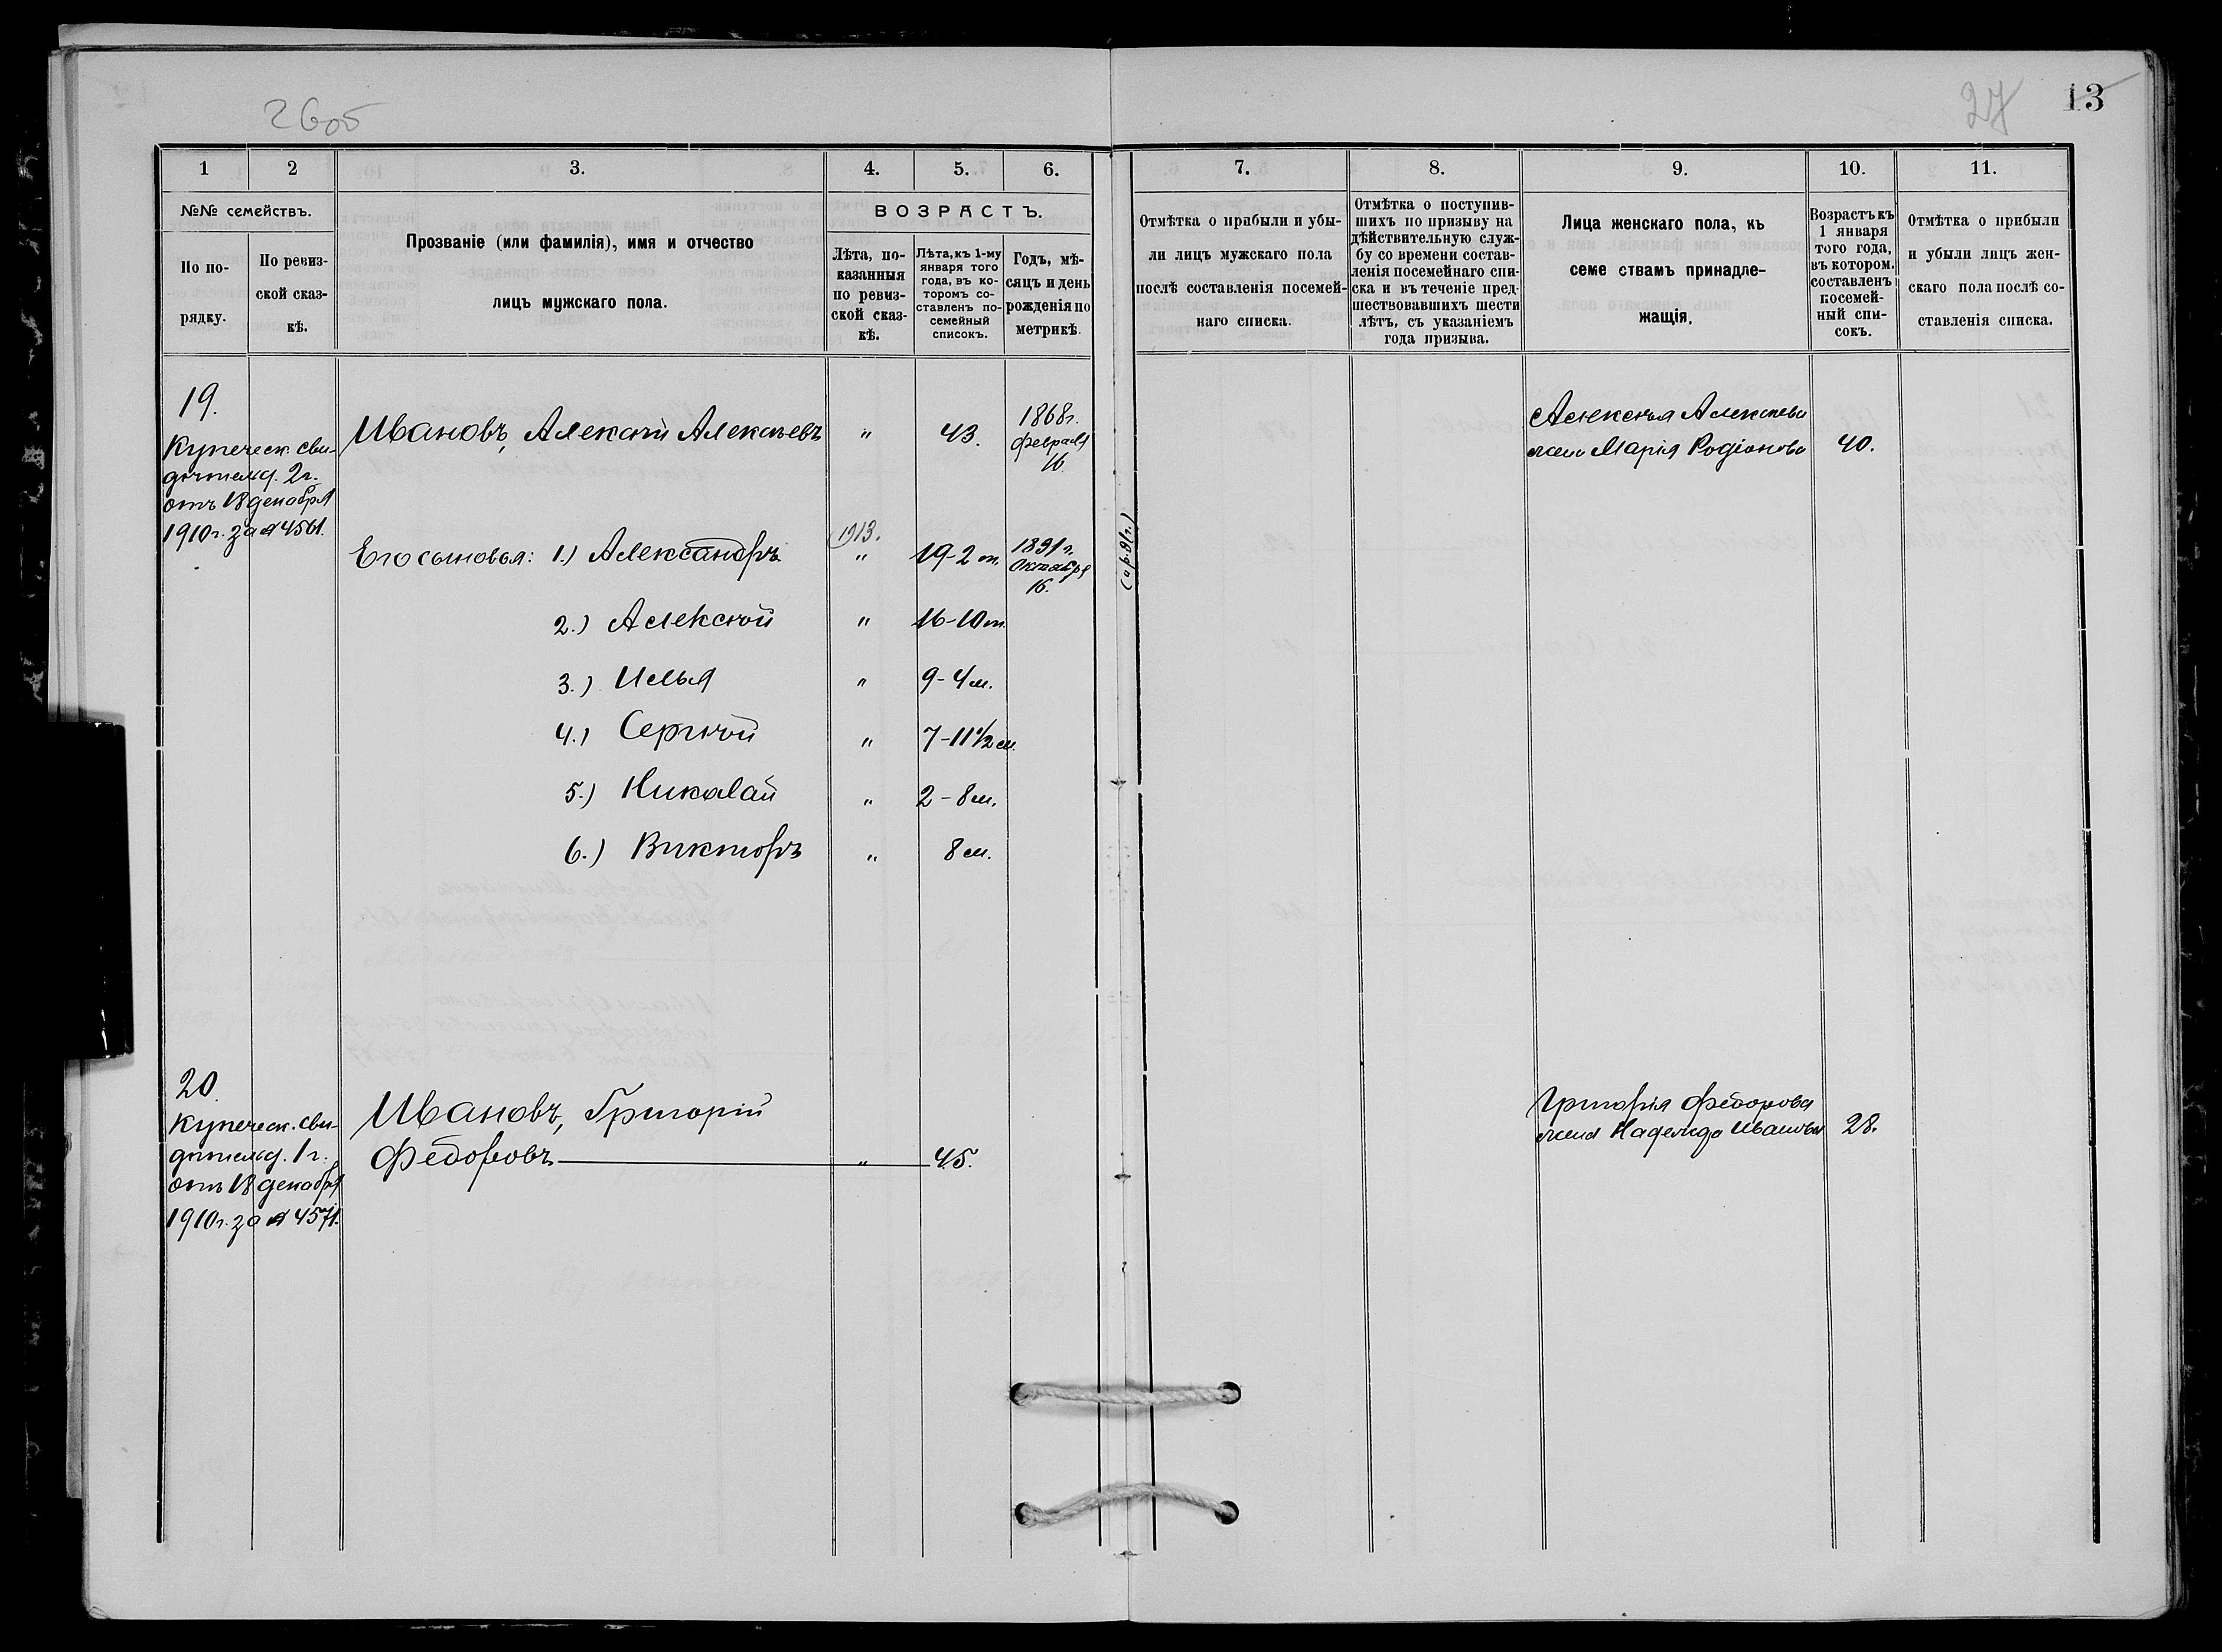 26об
27
13
1
2
3.
4.
5.
6.
7.
8.
9.
10.
11.
№№ семействъ.
По по-
рядку.
По ревиз-
ской сказ-
кѣ.
Прозваніе (или фамилія), имя и отчество
лицъ мужскаго пола.
ВОЗРАСТЪ.
Лѣта, по-
казанныя
по ревиз-
ской сказ-
кѣ.
Лѣта, къ 1-му
января того
года, въ ко-
торомъ со-
ставленъ по-
семейный
списокъ.
Годъ, мѣ-
сяцъ и день
рожденія по
метрикѣ.
Отмѣтка о прибыли и убы-
ли лицъ мужскаго пола
послѣ составленія посемей-
наго списка.
Отмѣтка о поступив-
шихъ по призыву на
дѣйствительную служ-
бу со времени состав-
ленія посемейнаго спи-
ска и въ теченіе пред-
шествовавшихъ шести
лѣтъ, съ указаніемъ
года призыва.
Лица женскаго пола, къ
семе ствамъ принадле-
жащія.
Возрастъ къ
1 января
того года,
въ котором.
составленъ
посемей-
ный спи-
сокъ.
Отмѣтка о прибыли
и убыли лицъ жен-
скаго пола послѣ со-
ставленія списка.
19.
Купеческ. сви-
дѣтельд. 2 г.
отъ 18 декабря
1910 г. за № 4561.
Ивановъ, Алексѣй Алексѣевъ " 43.
1868 г.
февраля
16.
Алексѣя Алексѣева
жена Марія Родіонова 40.
1913.
Его сыновья: 1.) Александръ " 19-2 м.
1891 г.
Октября
16.
2.) Алексѣй " 16-10 м.
3.) Илья " 9-4 м.
4.) Сергѣй " 7-11 1/2 м.
5.) Николай " 2-8 м.
6.) Викторъ " 8 м.
20.
Купеческ. сви-
дѣтельд. 1 г.
отъ 18 декабря
1910 г. за № 4571.
Ивановъ, Григорій
Федоровъ " 45.
Григорія Федорова
жена Надежда Иванова 28.